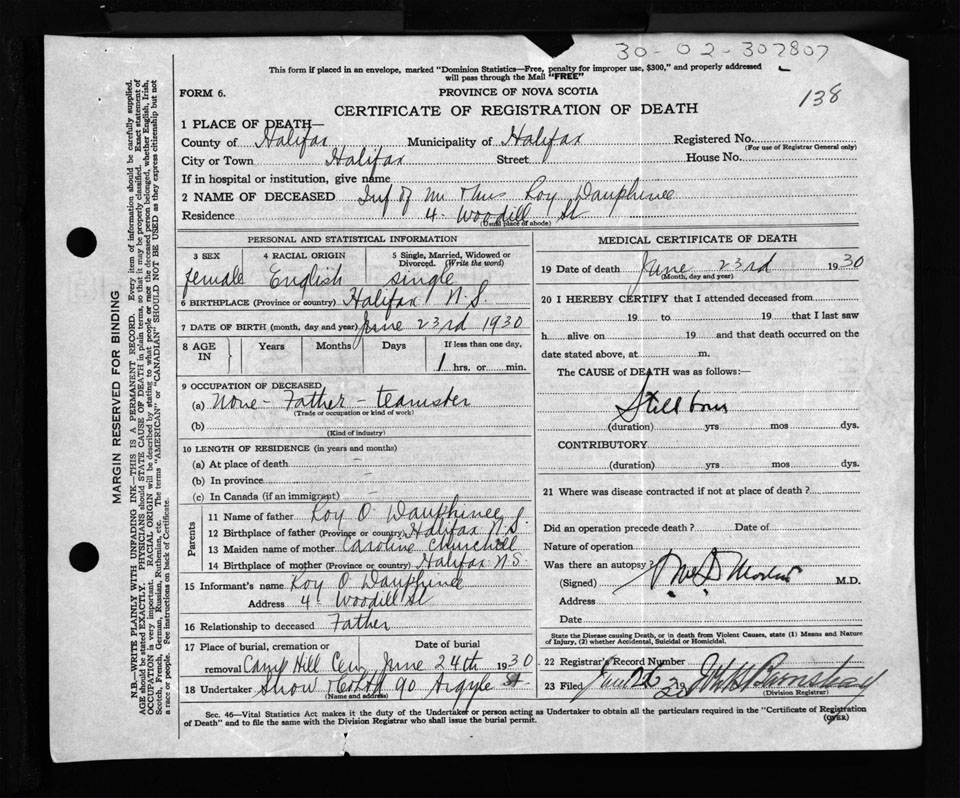 30-02-307807
This form if placed in an envelope, marked "Dominion Statistics—Free, penalty for improper use, $300," and properly addressed
will pass through the Mail "FREE"
138
FORM 6.
PROVINCE OF NOVA SCOTIA
CERTIFICATE OF REGISTRATION OF DEATH
1 PLACE OF DEATH—
County of Halifax Municipality of Halifax Registered No.
(For use of Registrar General only)
City or Town Halifax Street House No.
If in hospital or institution, give name
2 NAME OF DECEASED Inf of Mr & Mrs Roy Dauphinee
Residence 4 Woodill St
(Usual place of abode)
PERSONAL AND STATISTICAL INFORMATION
3 SEX 4 RACIAL ORIGIN 5 Single, Married, Widowed or
Divorced. (Write the word)
female English single
6 BIRTHPLACE (Province or country) Halifax N.S.
7 DATE OF BIRTH (month, day and year) June 23rd 1930
8 AGE IN Years Months Days If less than one day,
1 hrs. or min.
9 OCCUPATION OF DECEASED
(a) None - Father - teamster
(Trade or occupation or kind of work)
(b)
(Kind of industry)
10 LENGTH OF RESIDENCE (in years and months)
(a) At place of death –
(b) In province –
(c) In Canada (if an immigrant) –
Parents
11 Name of father Roy O Dauphinee
12 Birthplace of father (Province or country) Halifax N.S.
13 Maiden name of mother Caroline Churchill
14 Birthplace of mother (Province or country) Halifax N.S.
15 Informant's name Roy O Dauphinee
Address 4 Woodill St
16 Relationship to deceased Father
17 Place of burial, cremation or removal Date of burial
Camp Hill Cem June 24th 1930
18 Undertaker Snow & Co Ltd 90 Argyle St
(Name and address)
MEDICAL CERTIFICATE OF DEATH
19 Date of death June 23rd 1930
(Month, day and year)
20 I HEREBY CERTIFY that I attended deceased from
19 to 19 that I last saw
h alive on 19 and that death occurred on the
date stated above, at m.
The CAUSE of DEATH was as follows:—
Still born
(duration) yrs mos dys.
CONTRIBUTORY
(duration) yrs mos dys.
21 Where was disease contracted if not at place of death?
Did an operation precede death? Date of
Nature of operation
Was there an autopsy?
(Signed) M.D.
Address
Date
State the Disease causing Death, or in death from Violent Causes, state (1) Means and Nature
of Injury, (2) whether Accidental, Suicidal or Homicidal.
22 Registrar's Record Number
23 Filed June
(Division Registrar)
Sec. 46—Vital Statistics Act makes it the duty of the Undertaker or person acting as Undertaker to obtain all the particulars required in the "Certificate of Registration
of Death" and to file the same with the Division Registrar who shall issue the burial permit.
(OVER)
MARGIN RESERVED FOR BINDING
N.B.—WRITE PLAINLY WITH UNFADING INK—THIS IS A PERMANENT RECORD. Every item of information should be carefully supplied.
AGE should be stated EXACTLY. PHYSICIANS should STATE CAUSE OF DEATH in plain terms, so that it may be properly classified. Exact statement of
OCCUPATION is very important. RACIAL ORIGIN will be described by stating to what people or race the deceased person belonged, whether English, Irish,
Scotch, French, German, Russian, Ruthenian, etc. The terms "AMERICAN" or "CANADIAN" SHOULD NOT BE USED as they express citizenship but not
a race or people. See instructions on back of Certificate.